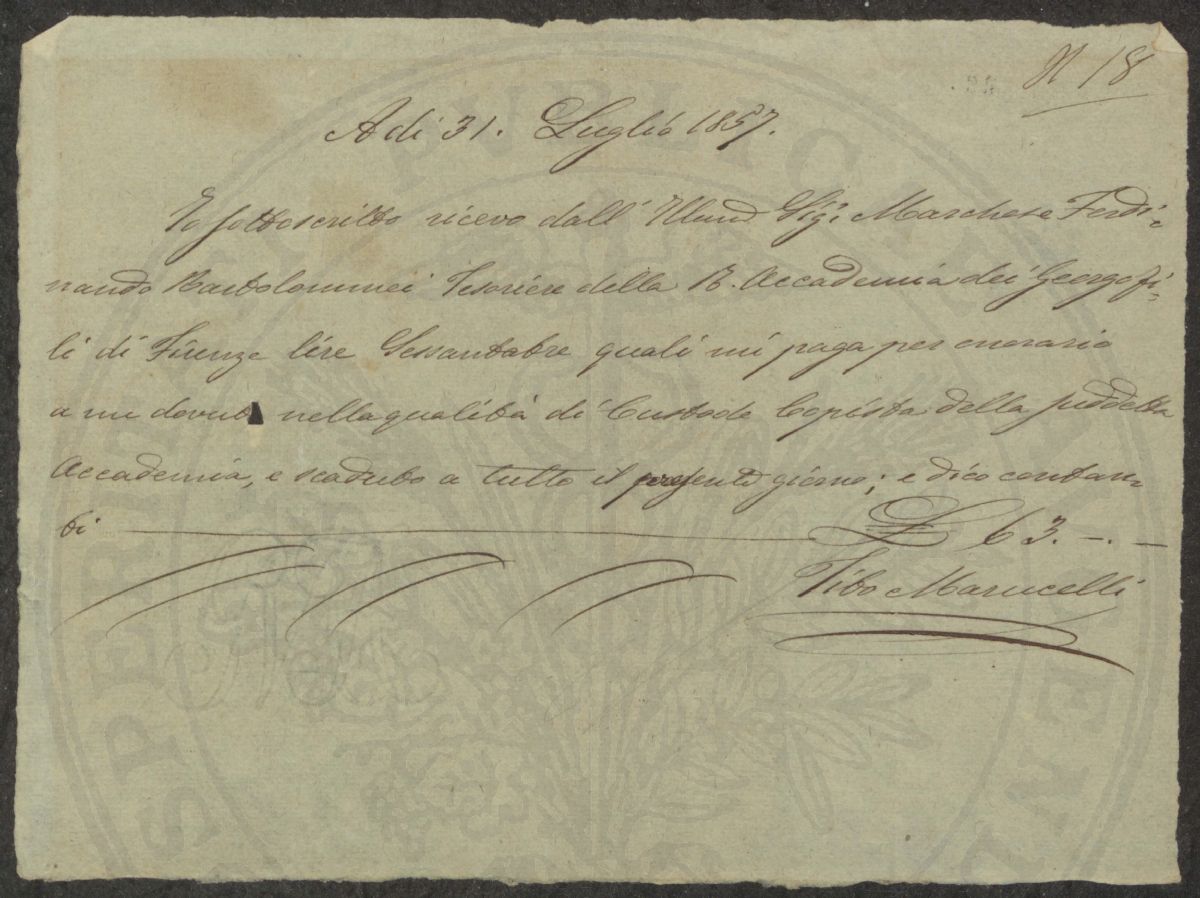 N 18
A di 31. Luglio 1857.
Io sottoscritto ricevo dall' Illmo Sigr Marchese Ferdi-
nando Bartolommei Tesoriere della R. Accademia dei Georgofi-
li di Firenze lire Sessantatre quali mi paga per onorario
a me dovuto nella qualità di Custode Copista della suddetta
Accademia, e scaduto a tutto il presente giorno; e dico contan-
ti £ 63. -. -
Tito Marucelli
PVBLICAE
PROSPERITATI
AVGENDAE